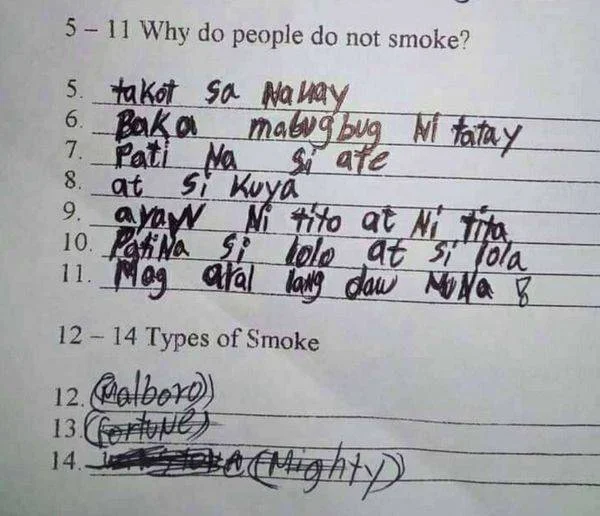 5 – 11 Why do people do not smoke?
5. takot sa Nanay
6. Baka mabugbug Ni tatay
7. Pati Na si ate
8. at si kuya
9. ayaw Ni tito at Ni tita
10. Pati Na si lolo at si lola
11. Mag aral lang daw MuNa 8
12 – 14 Types of Smoke
12. (Malboro)
13. (fortuNe)
14. (Mighty)